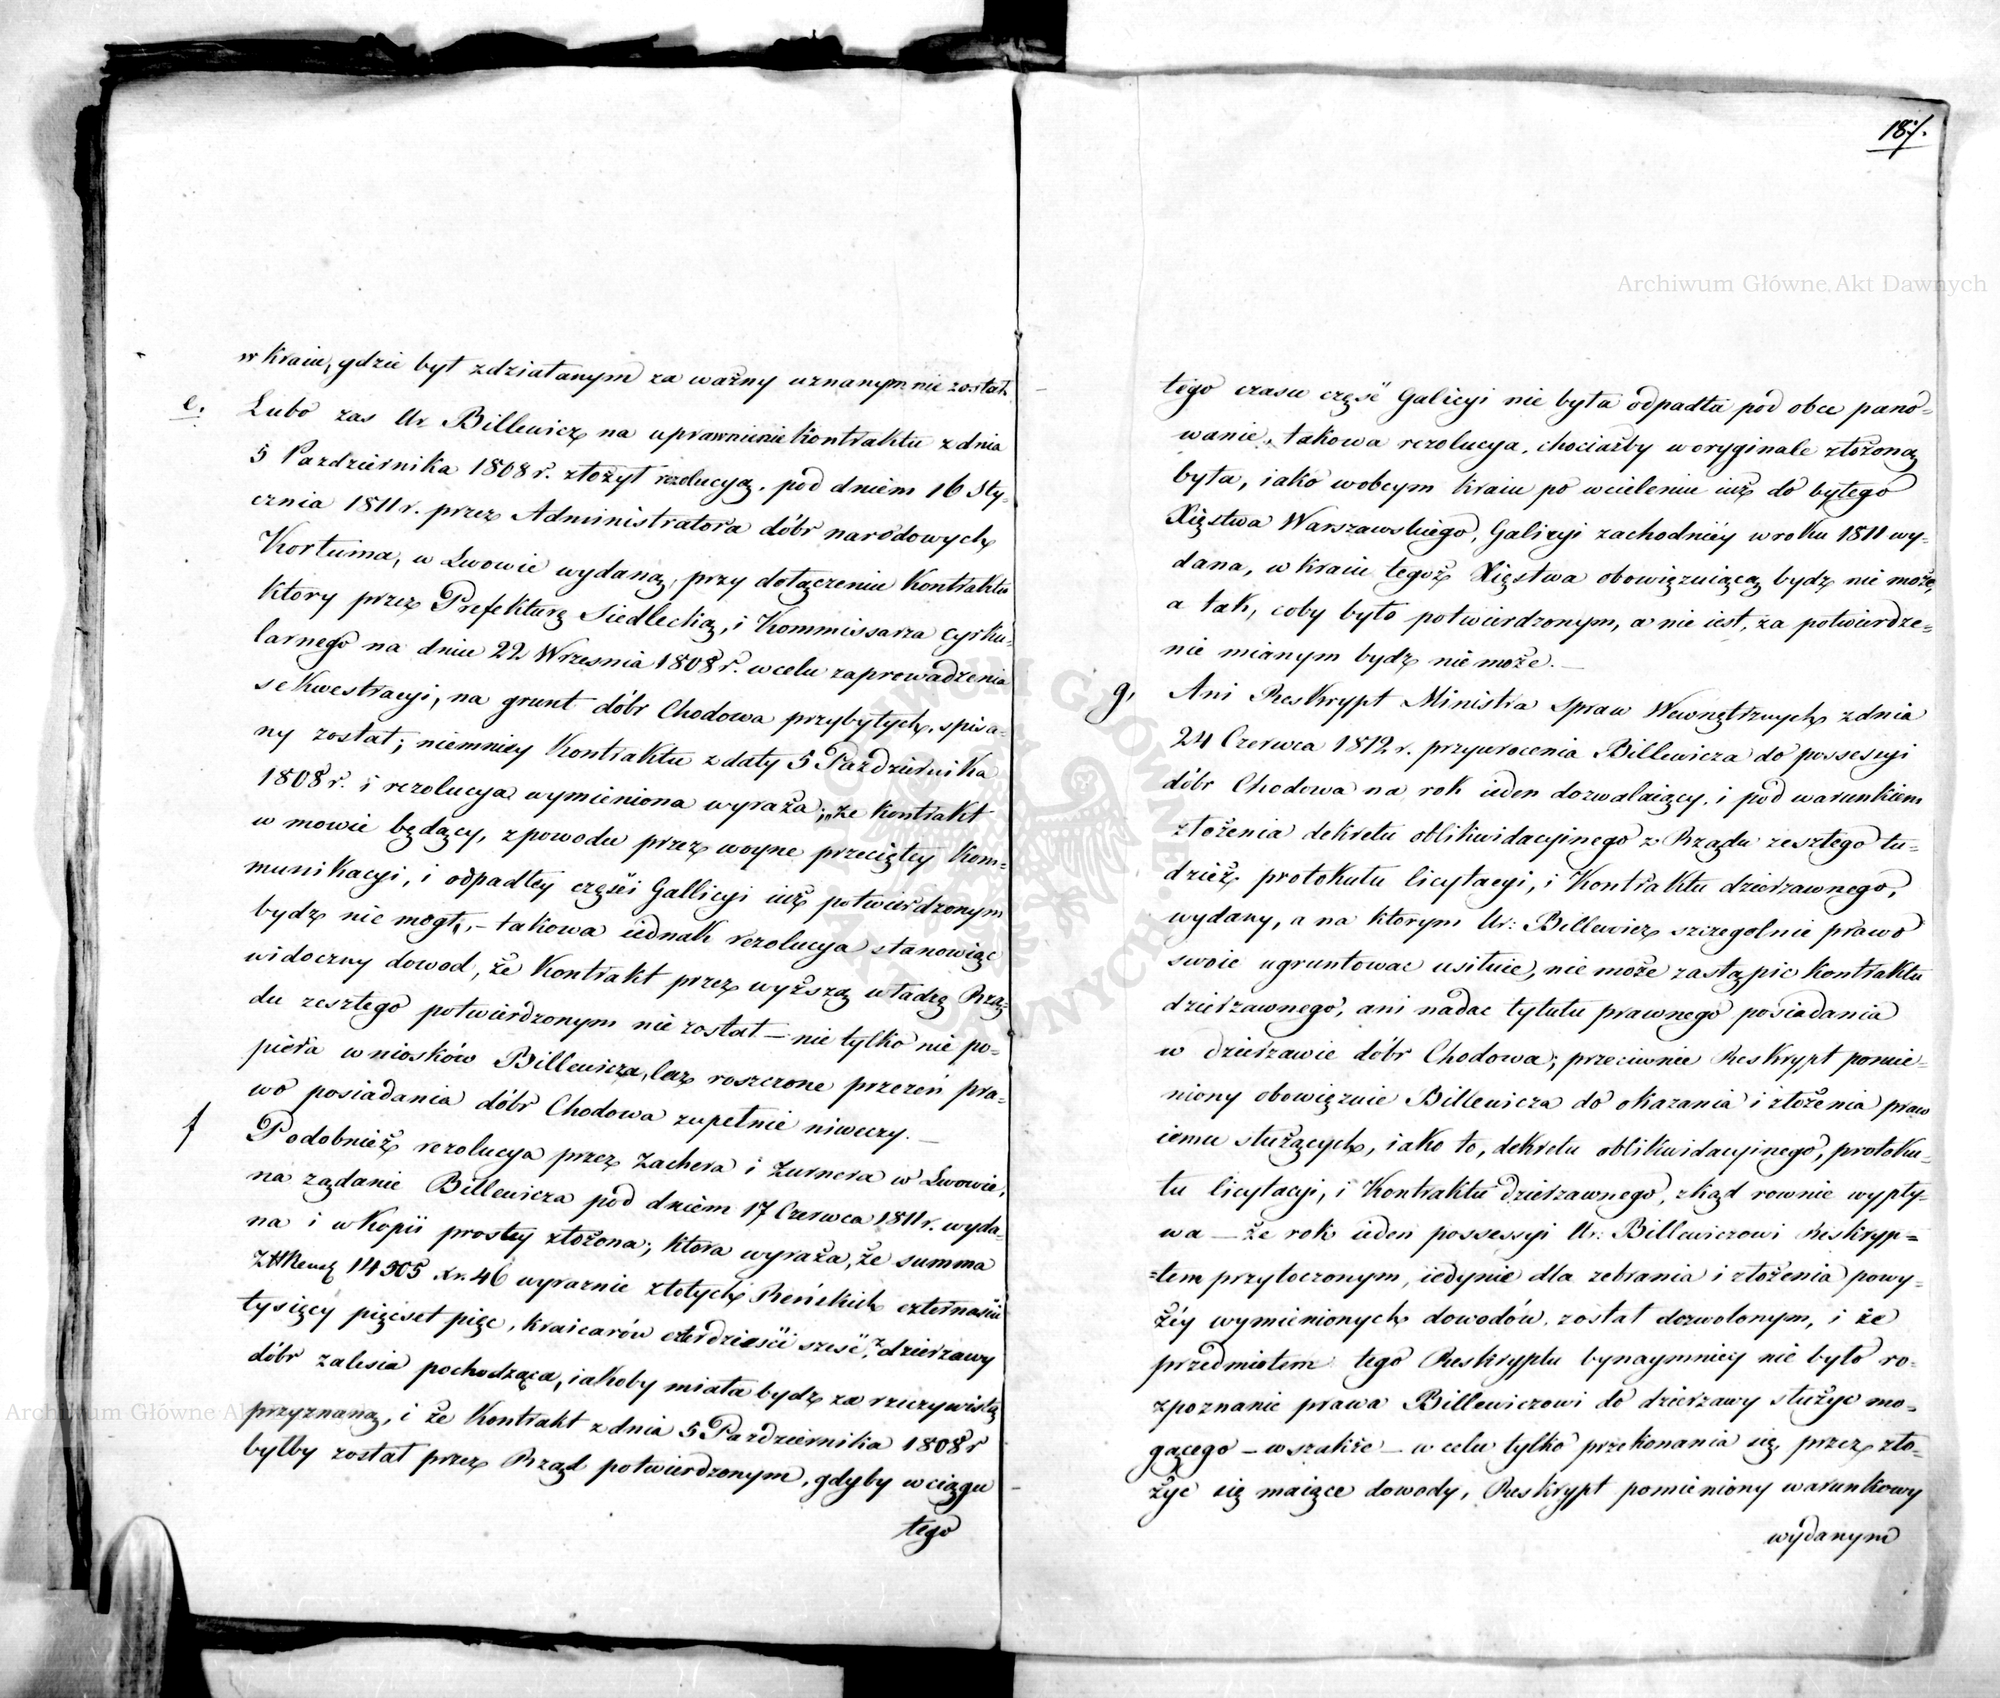 w kraiu, gdzie był zdziałanym za ważny uznanym nie został.
e. Lubo zas Ur Billewicz na uprawnienie kontraktu z dnia
5 Pazdziernika 1808 r. złożył rezolucyą, pod dniem 16 Sty-
cznia 1811 r. przez Administratora dóbr narodowych
Kortuma, w Lwowie wydaną, przy dołączeniu Kontraktu
ktory przez Prefekturę Siedlecką, i Kommissarza cyrku-
larnego na dniu 22 Wrzesnia 1808 r. w celu zaprowadzenia
sekwestracyi, na grunt dóbr Chodowa przybyłych, spisa-
ny został; niemniey Kontraktu z daty 5 Pazdziernika
1808 r. i rezolucya wymieniona wyraża; "że kontrakt
w mowie będący, z powodu przez woynę przeciętey kom-
munikacyi, i odpadłey części Gallicyi iuż potwierdzonym
bydz nie mogł, - takowa iednak rezolucya stanowiąc
widoczny dowod, że Kontrakt przez wyższą władzę Rzą-
du zeszłego potwierdzonym nie został - nie tylko nie po-
piera wniosków Billewicza, lecz roszczone przezeń pra-
wo posiadania dóbr Chodowa zupełnie niweczy. -
f Podobnież rezolucya przez Zachera i Zurnera w Lwowie,
na żądanie Billewicza pod dniem 17 Czerwca 1811 r. wyda-
na i w Kopii prostey złożona; ktora wyraża, że summa
14505 xr. 46 wyraznie złotych Reńskich czternaście
tysięcy pięćset pięc, kraicarów czterdzieści szesć, z dzierżawy
dóbr zalesia pochodząca, iakoby miała bydz za rzeczywistą
przyznaną, i że Kontrakt z dnia 5 Pazdziernika 1808 r
byłby został przez Rząd potwierdzonym, gdyby w ciągu
tego
187.
tego czasu część Galicyi nie była odpadła pod obce pano-
wanie, takowa rezolucya, chociażby w oryginale złożoną
była, iako w obcym kraiu po wcieleniu iuż do byłego
Xięstwa Warszawskiego, Galicyi zachodniéy w roku 1811 wy-
dana, w kraiu tegoż Xięstwa obowiązuiącą bydz nie może,
a tak, coby było potwierdzonym, a nie iest, za potwierdze-
nie mianym bydz nie może. -
g, Ani Reskrypt Ministra Spraw Wewnętrznych z dnia
24 Czerwca 1812 r. przywrocenia Billewicza do possessyi
dóbr Chodowa na rok ieden dozwalaiący, i pod warunkiem
złożenia dekretu oblikwidacyinego z Rządu zeszłego tu-
dzież protokułu licytacyi, i Kontraktu dzierzawnego,
wydany, a na ktorym Ur: Billewicz szczegolnie prawo
swoie ugruntowac usiłuie, nie może zastąpic kontraktu
dzierzawnego, ani nadac tytułu prawnego posiadania
w dzierzawie dóbr Chodowa; przeciwnie Reskrypt pomie-
niony obowięzuie Billewicza do okazania i złożenia praw
iemu służących, iako to, dekretu oblikwidacyinego, protoku-
łu licytacyi, i Kontraktu dzierzawnego, zkąd rownie wypły-
wa - że rok ieden possessyi Ur: Billewiczowi Reskryp=
=tem przytoczonym, iedynie dla zebrania i złożenia powy-
żéy wymienionych dowodów, został dozwolonym, i że
przedmiotem tego Reskryptu bynaymniey nie było ro-
zpoznanie prawa Billewiczowi do dzierzawy służyc mo-
gącego - wszakże - w celu tylko przekonania się, przez zło-
życ się maiące dowody, Reskrypt pomieniony warunkowy
wydanym
Archiwum Główne Akt Dawnych